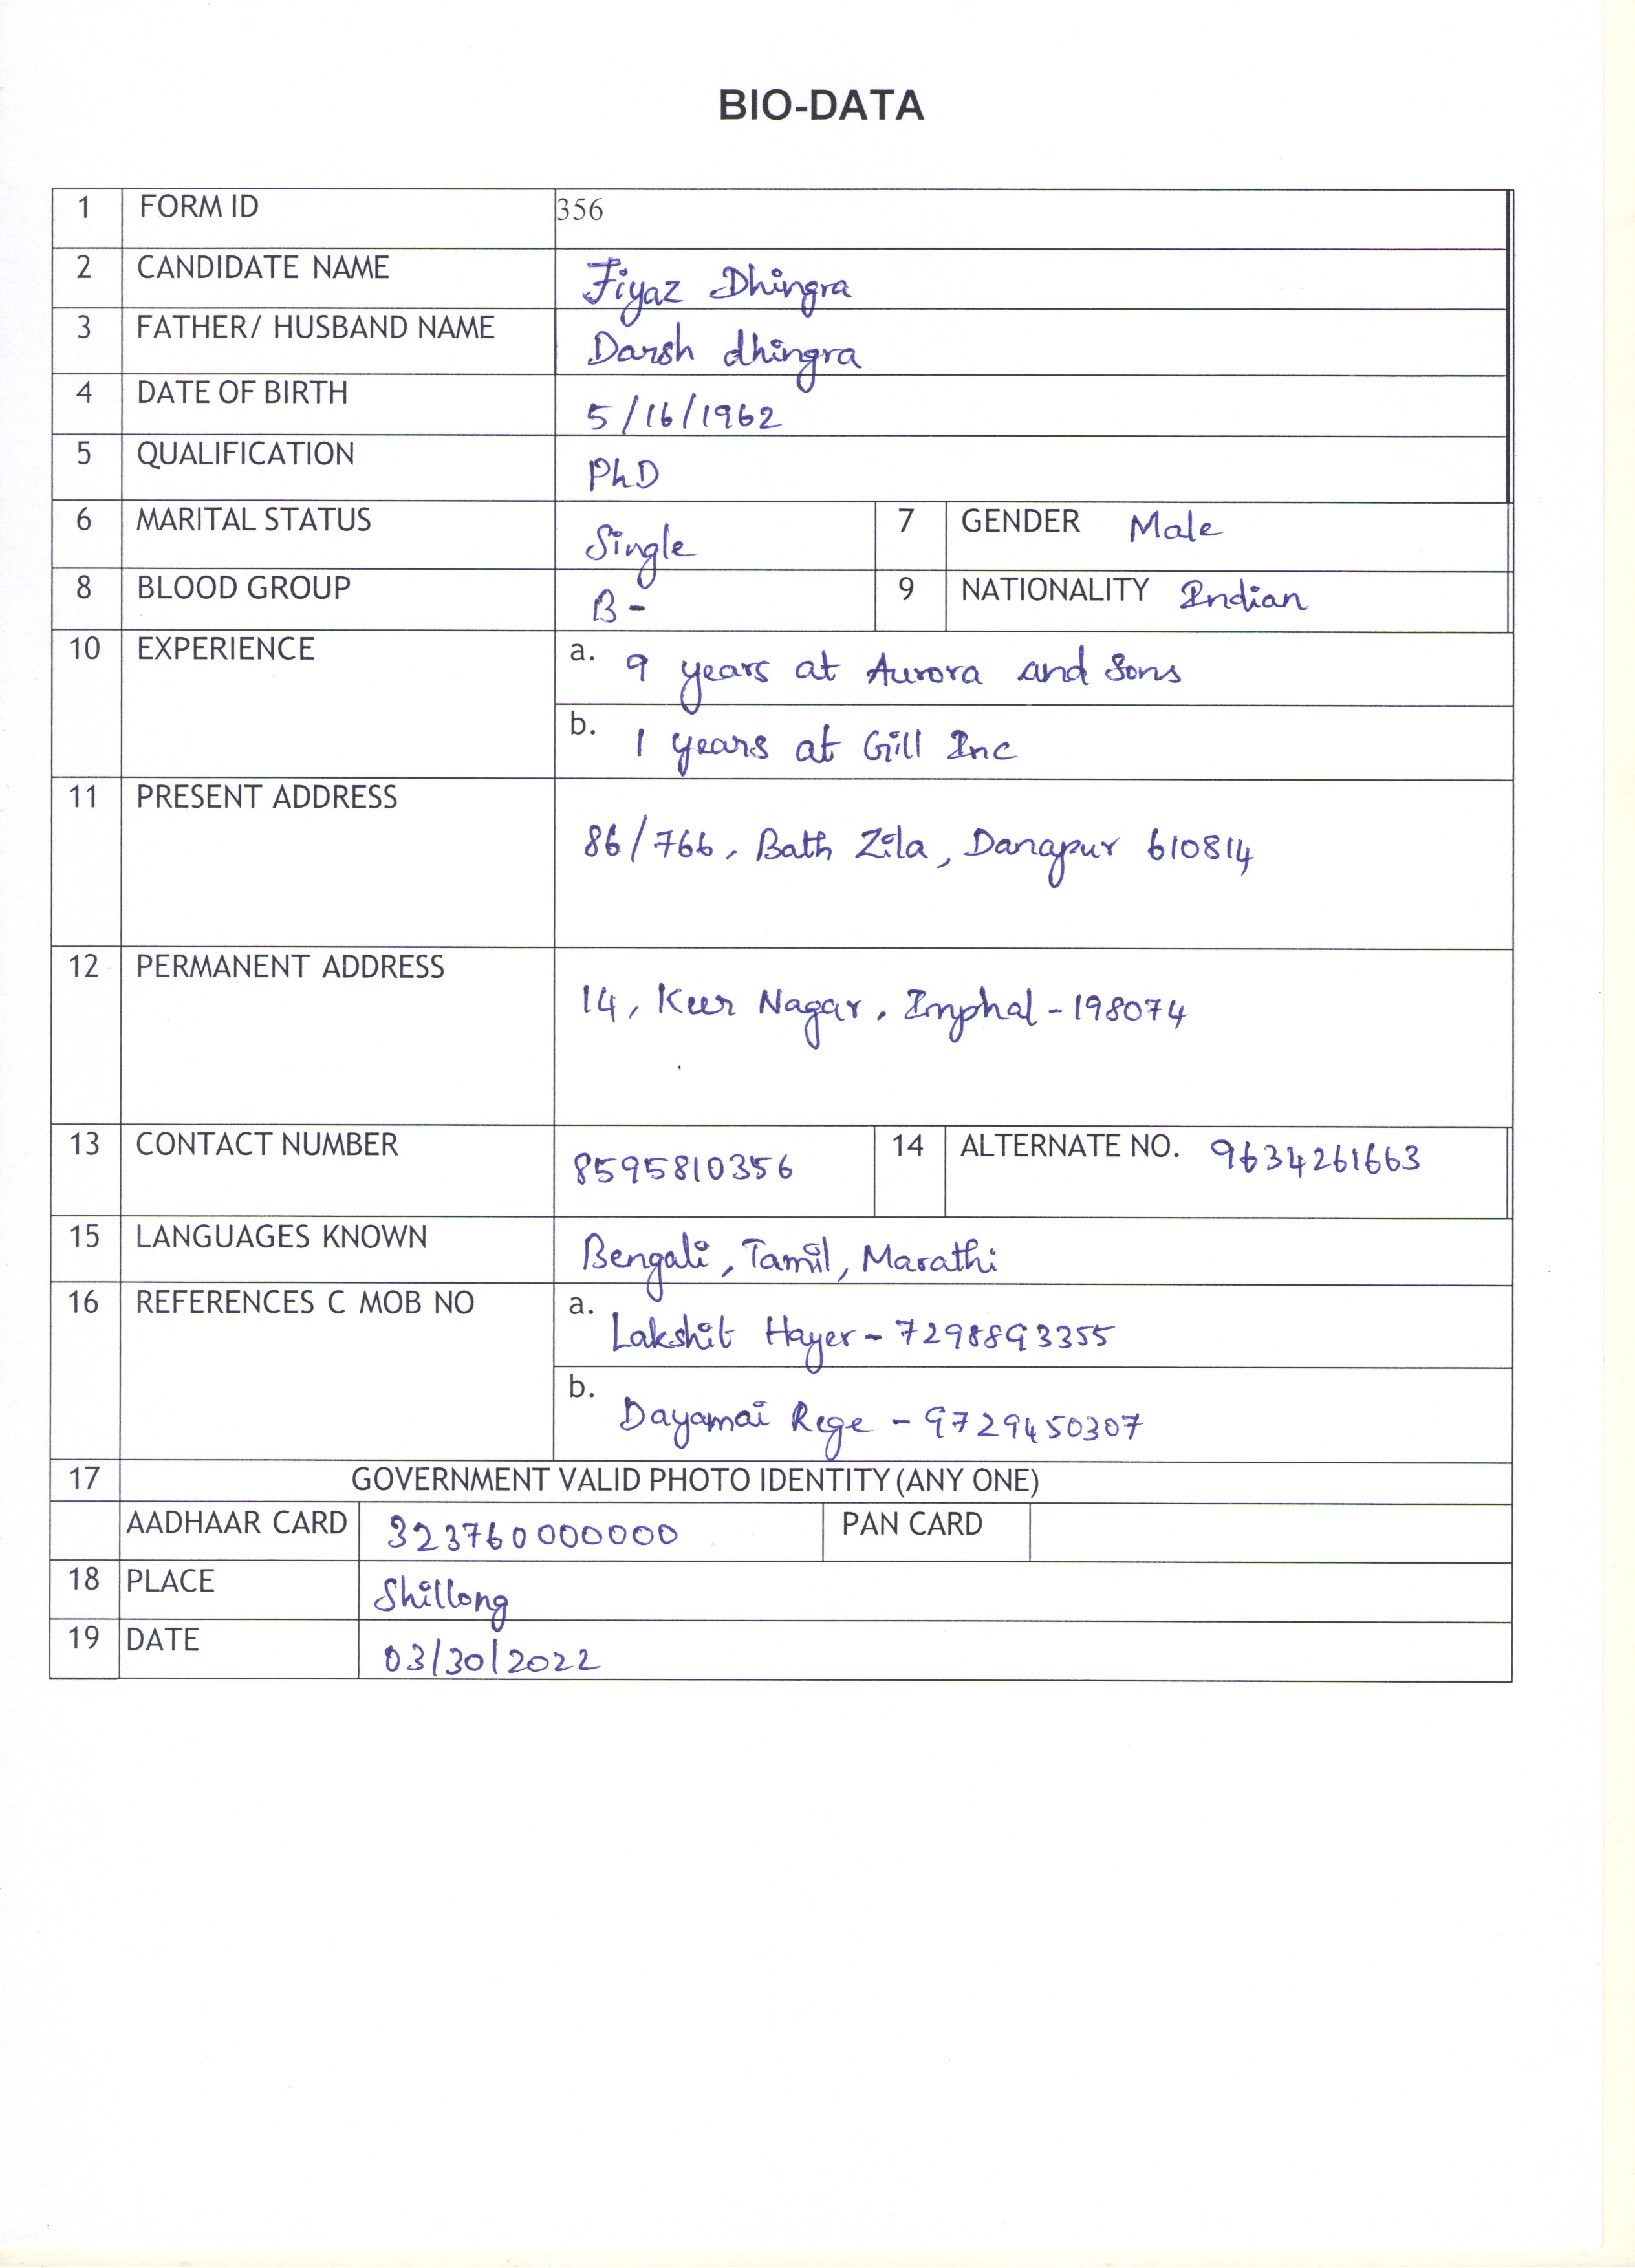 BIO-DATA
1 FORM ID 356
2 CANDIDATE NAME Fiyaz Dhingra
3 FATHER/ HUSBAND NAME Darsh dhingra
4 DATE OF BIRTH 5/16/1962
5 QUALIFICATION PhD
6 MARITAL STATUS Single 7 GENDER Male
8 BLOOD GROUP B- 9 NATIONALITY Indian
10 EXPERIENCE a. 9 years at Aurora and Sons
b. 1 years at Gill Inc
11 PRESENT ADDRESS
86/766, Bath Zila, Danapur 610814
12 PERMANENT ADDRESS
14, Keer Nagar, Imphal-198074
13 CONTACT NUMBER 8595810356 14 ALTERNATE NO. 9634261663
15 LANGUAGES KNOWN Bengali, Tamil, Marathi
16 REFERENCES C MOB NO a. Lakshit Hayer- 7298893355
b. Dayamai Rege - 9729450307
17 GOVERNMENT VALID PHOTO IDENTITY (ANY ONE)
AADHAAR CARD 323760000000 PAN CARD
18 PLACE Shillong
19 DATE 03/30/2022